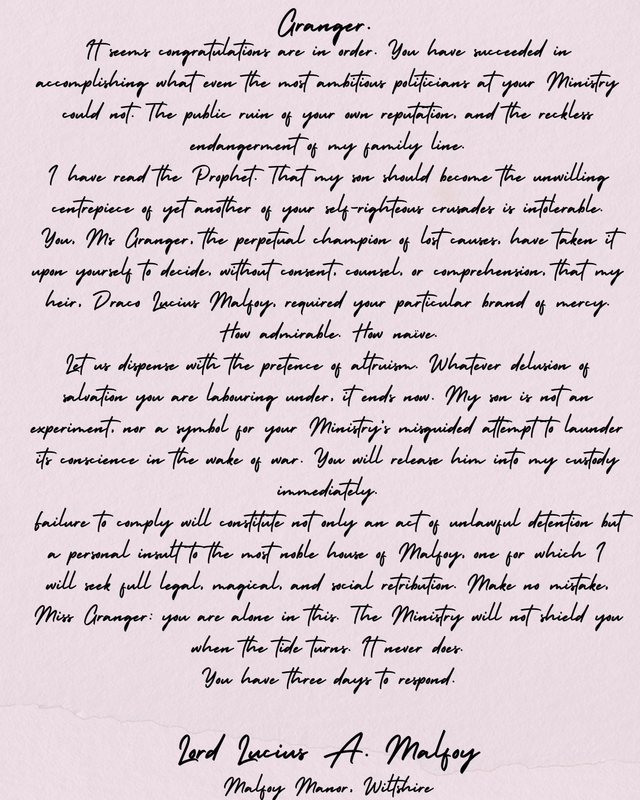 Granger.
It seems congratulations are in order. You have succeeded in
accomplishing what even the most ambitious politicians at your Ministry
could not. The public ruin of your own reputation, and the reckless
endangerment of my family line.
I have read the Prophet. That my son should become the unwilling
centrepiece of yet another of your self-righteous crusades is intolerable.
You, Ms Granger, the perpetual champion of lost causes, have taken it
upon yourself to decide, without consent, counsel, or comprehension, that my
heir, Draco Lucius Malfoy, required your particular brand of mercy.
How admirable. How naive.
Let us dispense with the pretence of altruism. Whatever delusion of
salvation you are labouring under, it ends now. My son is not an
experiment, nor a symbol for your Ministry's misguided attempt to launder
its conscience in the wake of war. You will release him into my custody
immediately.
failure to comply will constitute not only an act of unlawful detention but
a personal insult to the most noble house of Malfoy, one for which I
will seek full legal, magical, and social retribution. Make no mistake,
Miss Granger: you are alone in this. The Ministry will not shield you
when the tide turns. It never does.
You have three days to respond.
Lord Lucius A. Malfoy
Malfoy Manor, Wiltshire